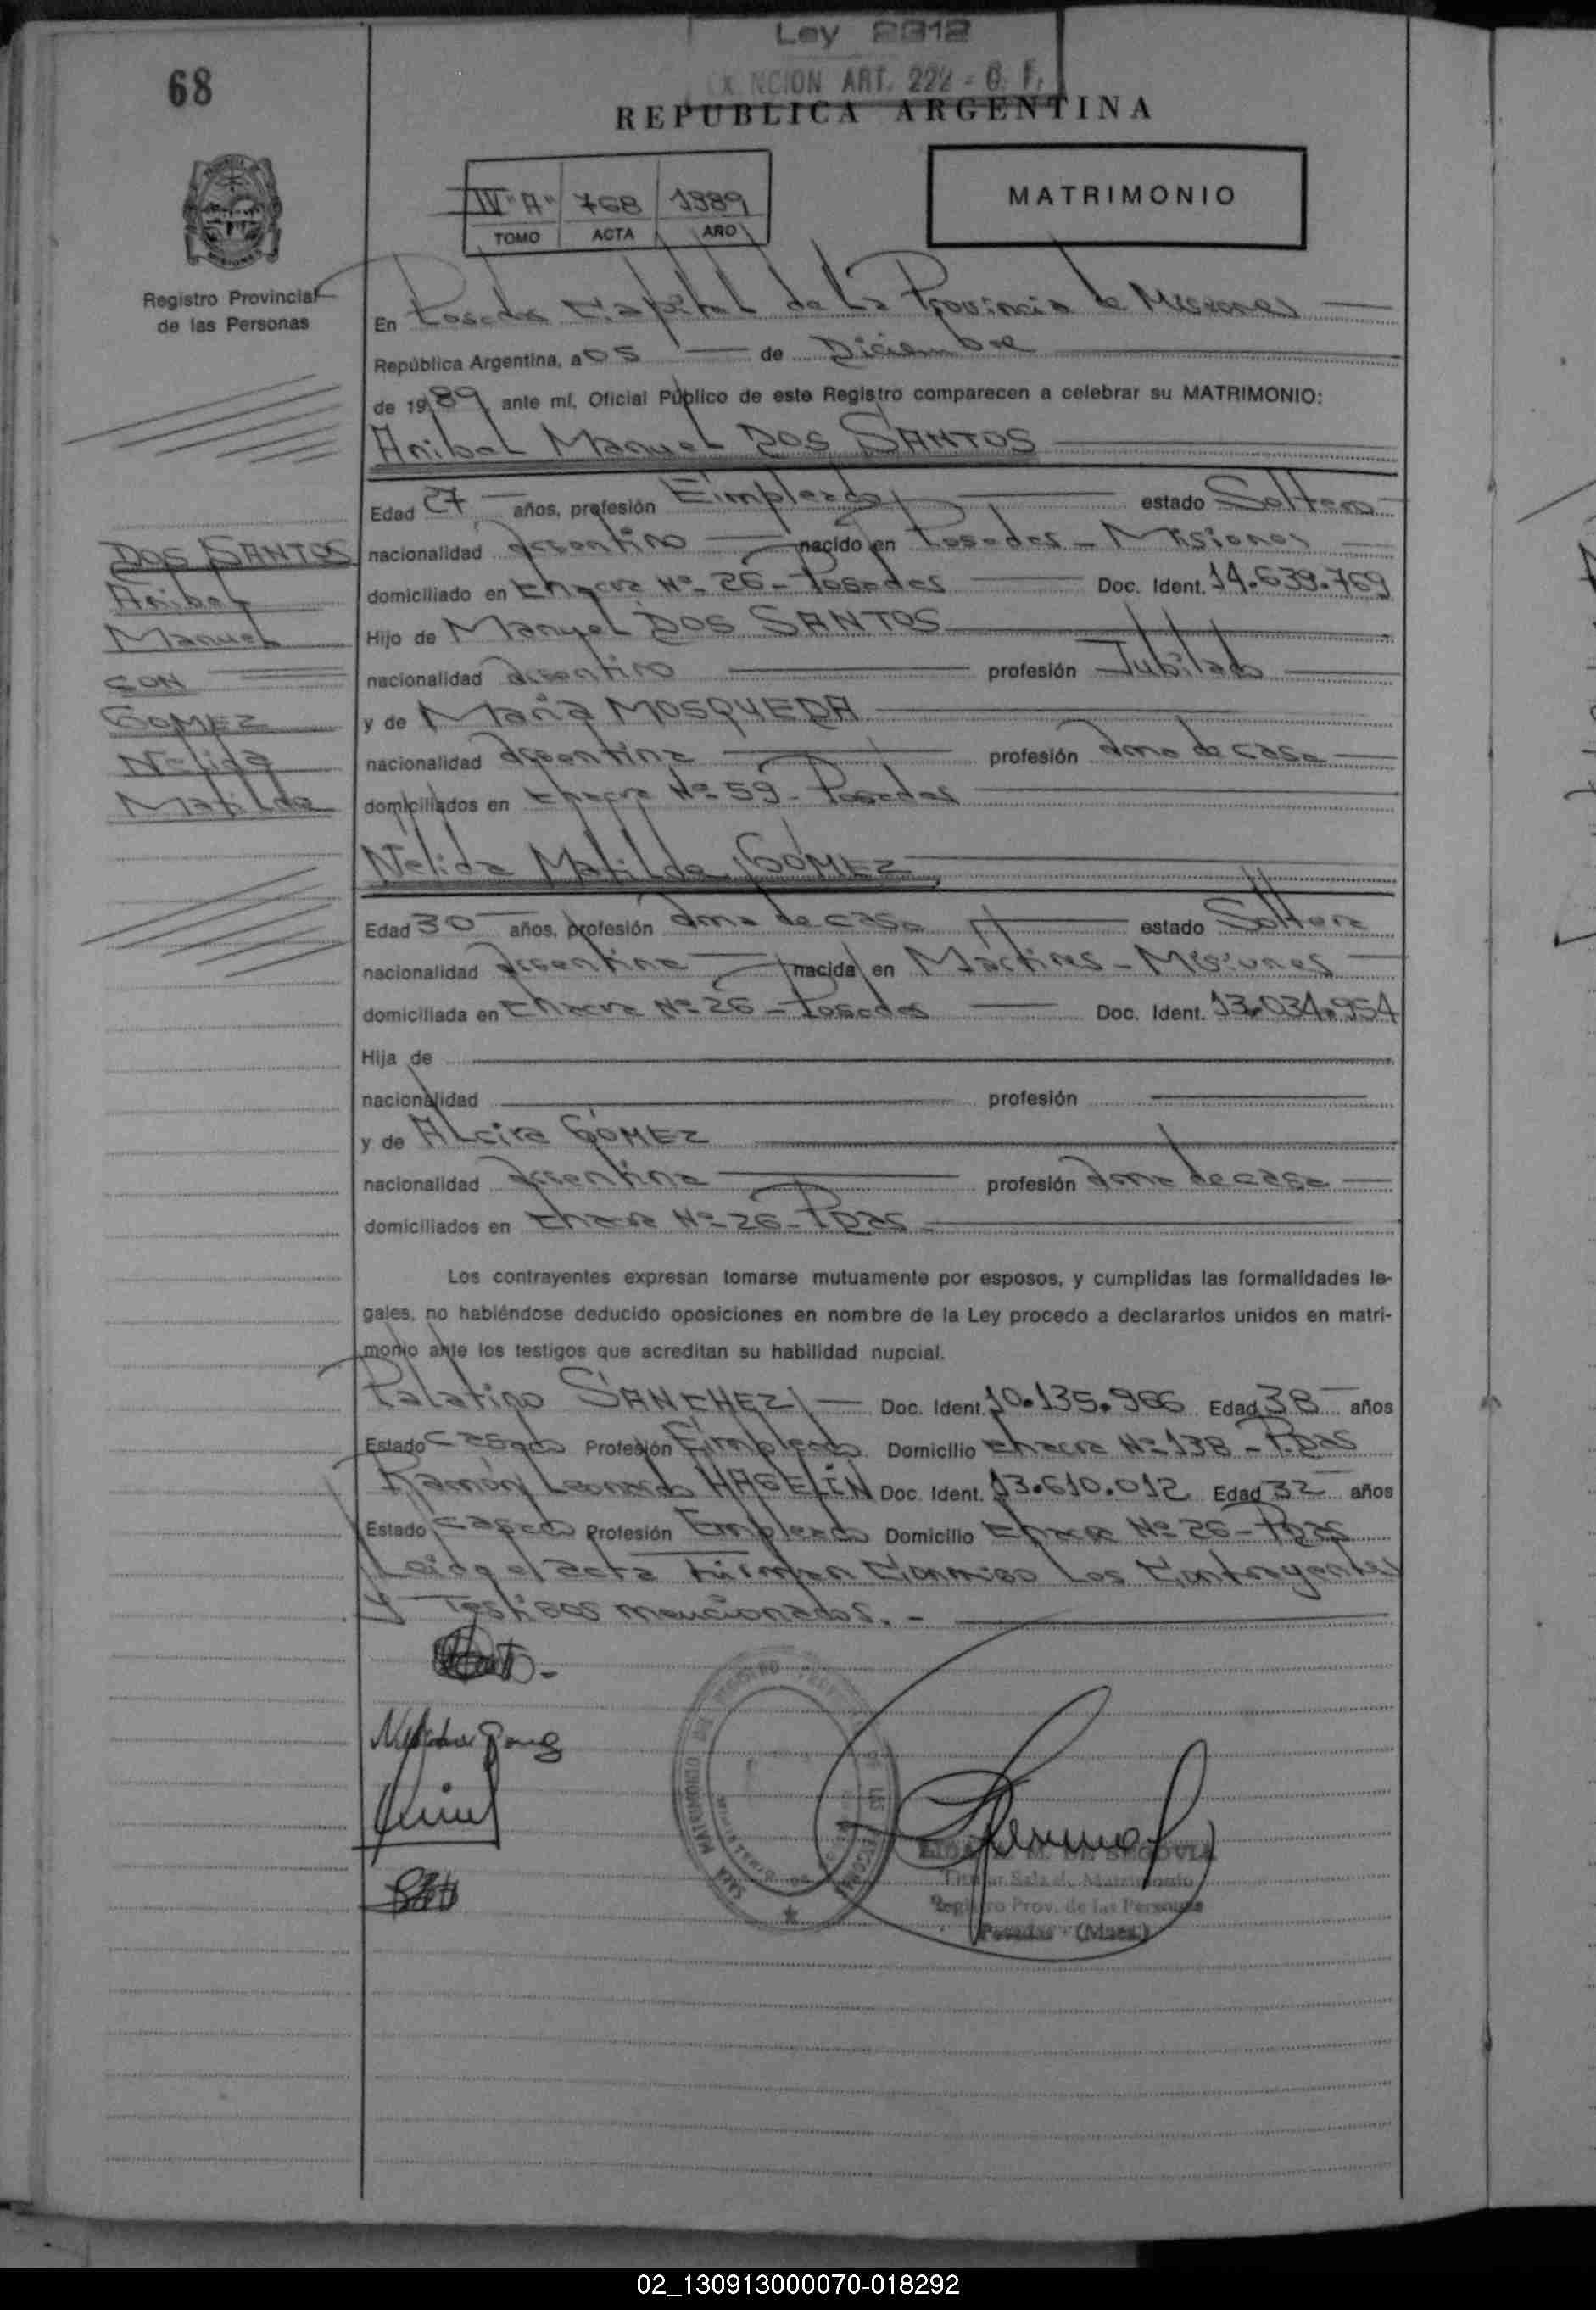 Ley 2312
EXENCION ART. 222 - C. F.
68
REPUBLICA ARGENTINA
IV "A" 768 1989
TOMO ACTA AÑO
MATRIMONIO
Registro Provincial
de las Personas
En Posadas Capital de la Provincia de Misiones
República Argentina, a 05 de Diciembre
de 1989, ante mí, Oficial Público de este Registro comparecen a celebrar su MATRIMONIO:
Anibal Manuel DOS SANTOS
Edad 27 años, profesión Empleado estado Soltero
nacionalidad argentino nacido en Posadas - Misiones
domiciliado en Chacra Nº 26 - Posadas Doc. Ident. 14.639.769
Hijo de Manuel DOS SANTOS
nacionalidad argentino profesión Jubilado
y de Maria MOSQUEDA
nacionalidad argentina profesión ama de casa
domiciliados en Chacra Nº 59 - Posadas
DOS SANTOS
Anibal
Manuel
CON
GOMEZ
Nelida
Matilde
Nelida Matilde GOMEZ
Edad 30 años, profesión ama de casa estado Soltera
nacionalidad argentina nacida en Martires - Misiones
domiciliada en Chacra Nº 26 - Posadas Doc. Ident. 13.034.954
Hija de
nacionalidad profesión
y de Alcira GOMEZ
nacionalidad argentina profesión ama de casa
domiciliados en Chacra Nº 26 - Pdas
Los contrayentes expresan tomarse mutuamente por esposos, y cumplidas las formalidades le-
gales, no habiéndose deducido oposiciones en nombre de la Ley procedo a declararlos unidos en matri-
monio ante los testigos que acreditan su habilidad nupcial.
Palatino SANCHEZ Doc. Ident. 10.135.966 Edad 38 años
Estado Casado Profesión Empleado Domicilio Chacra Nº 138 - Pdas
Ramón Leonardo HAGELIN Doc. Ident. 13.610.012 Edad 32 años
Estado Casado Profesión Empleado Domicilio Chacra Nº 26 - Pdas
Leida el acta firman conmigo los contrayentes
y Testigos mencionados. -
M. DE SEGOVIA
Titular Sala d. Matrimonio
Registro Prov. de las Personas
Posadas - (Mnes.)
02_130913000070-018292